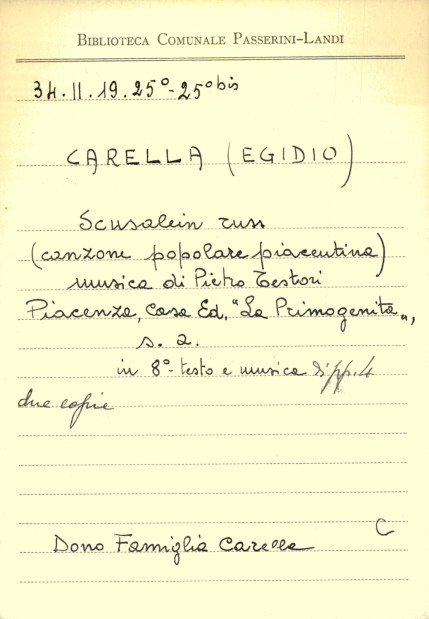 BIBLIOTECA COMUNALE PASSERINI-LANDI
34.II.19.25°-25°bis
CARELLA (EGIDIO)
Scusalein russ
(canzone popolare piacentina)
musica di Pietro Testori
Piacenza, Casa Ed. "La Primogenita",
s. a.
in 8°- testo e musica di pp. 4
due copie
C
Dono Famiglia Carella